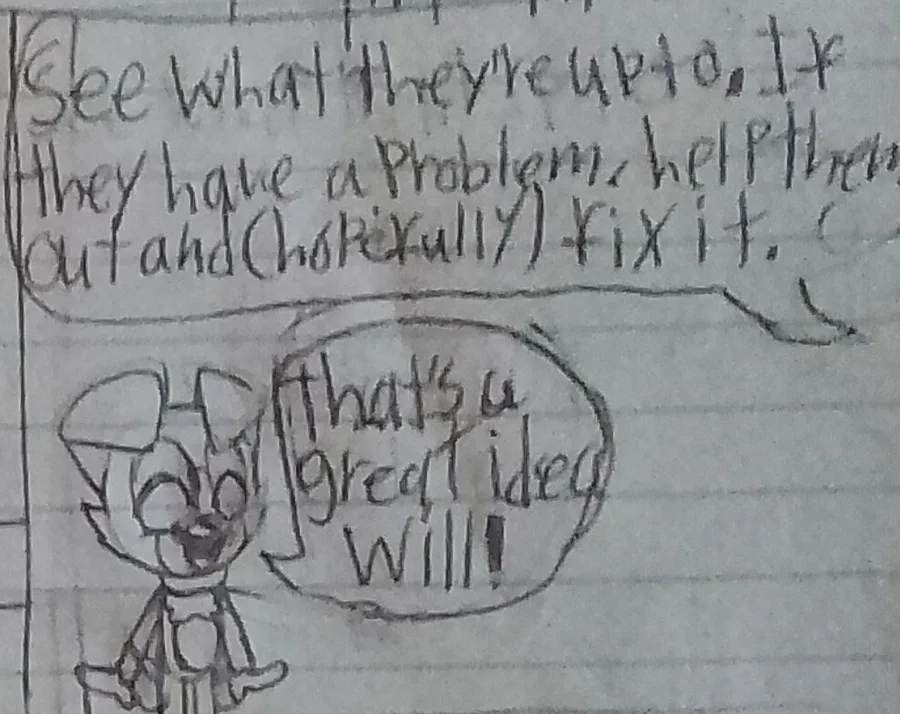 See what they're up to. If
they have a problem, help them
out and (hopefully) fix it.
that's a
great idea
Will!